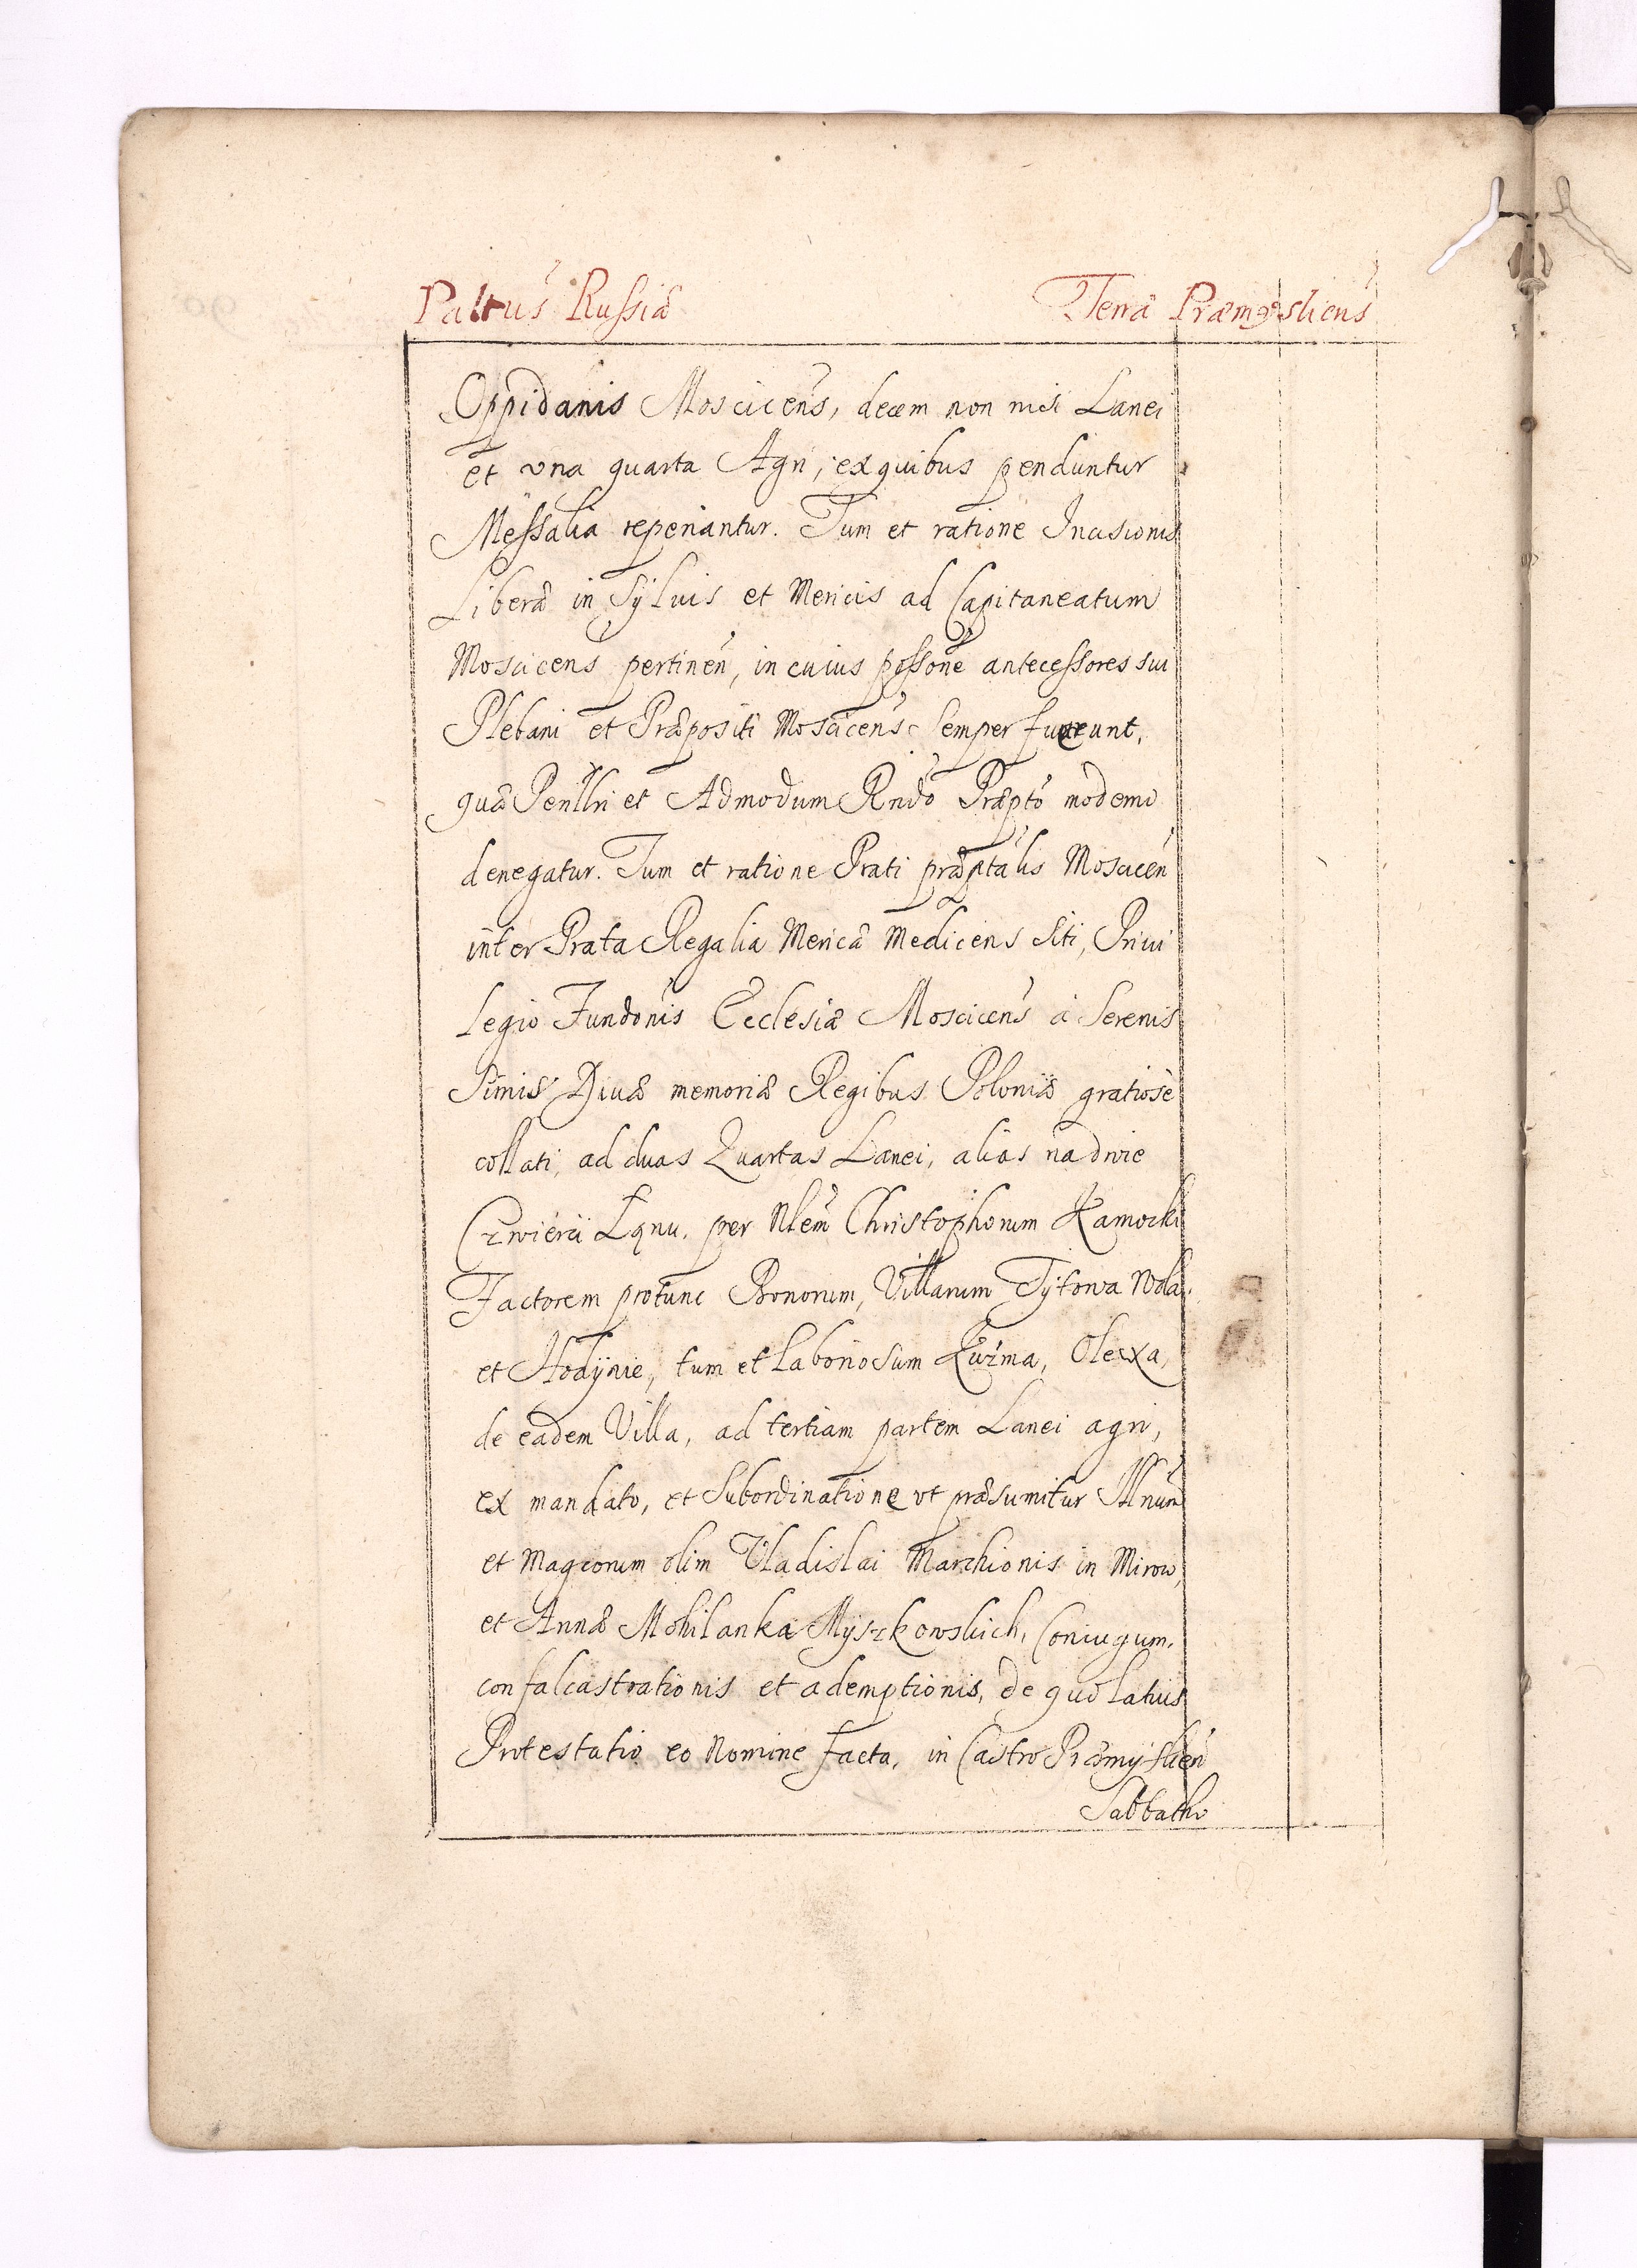 Paltus Russiæ Terræ Præmysliens
Oppidanis Moscicens, decem non nisi Lanei
et una quarta Agri, ex quibus penduntur
Messalia reperiantur. Tum et ratione Incisionis
Liberæ in Sylvis et Mericis ad Capitaneatum
Moscicens pertinen, in cuius possone antecessores sui
Plebani et Præpositi Moscicens semper fuerunt,
quæ Admodum Rndo Præpto moderno
denegatur. Tum et ratione Prati præptalis Moscicen
inter Prata Regalia Mericæ Medicens siti, Privi
legio Fundonis Ecclesiæ Moscicens à Serenis
simis Divæ memoriæ Regibus Poloniæ gratiosè
collati, ad duas Quartas Lanei, alias na dwie
Czwierci Łanu, per Nlem Christophorum Kamocki
Factorem protunc Bonorum, Villarum Tÿtowa Wola,
et Hodÿnie, tum et laboriosum Kuźma, Olexa,
de eadem Villa, ad tertiam partem Lanei agri,
ex mandato, et Subordinatione vt præsumitur Illnum
et Magcorum olim Vladislai Marchionis in Mirow,
et Annæ Mohilanka Mÿszkowskich, Coniugum.
confalcastrationis et ademptionis, de quo latius
Protestatio eo Nomine facta, in Castro Præmÿslien
Sabbatho